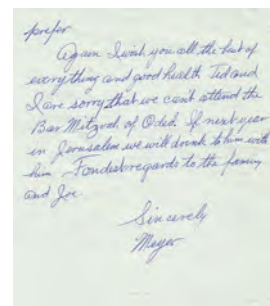 prefer
Again I wish you all the best of
everything and good health Ted and
I are sorry that we can't attend the
Bar Mitzvah of Oded. If next year
in Jerusalem we will drink to him with
him Fondest regards to the family
and Joe.
Sincerely
Meyer